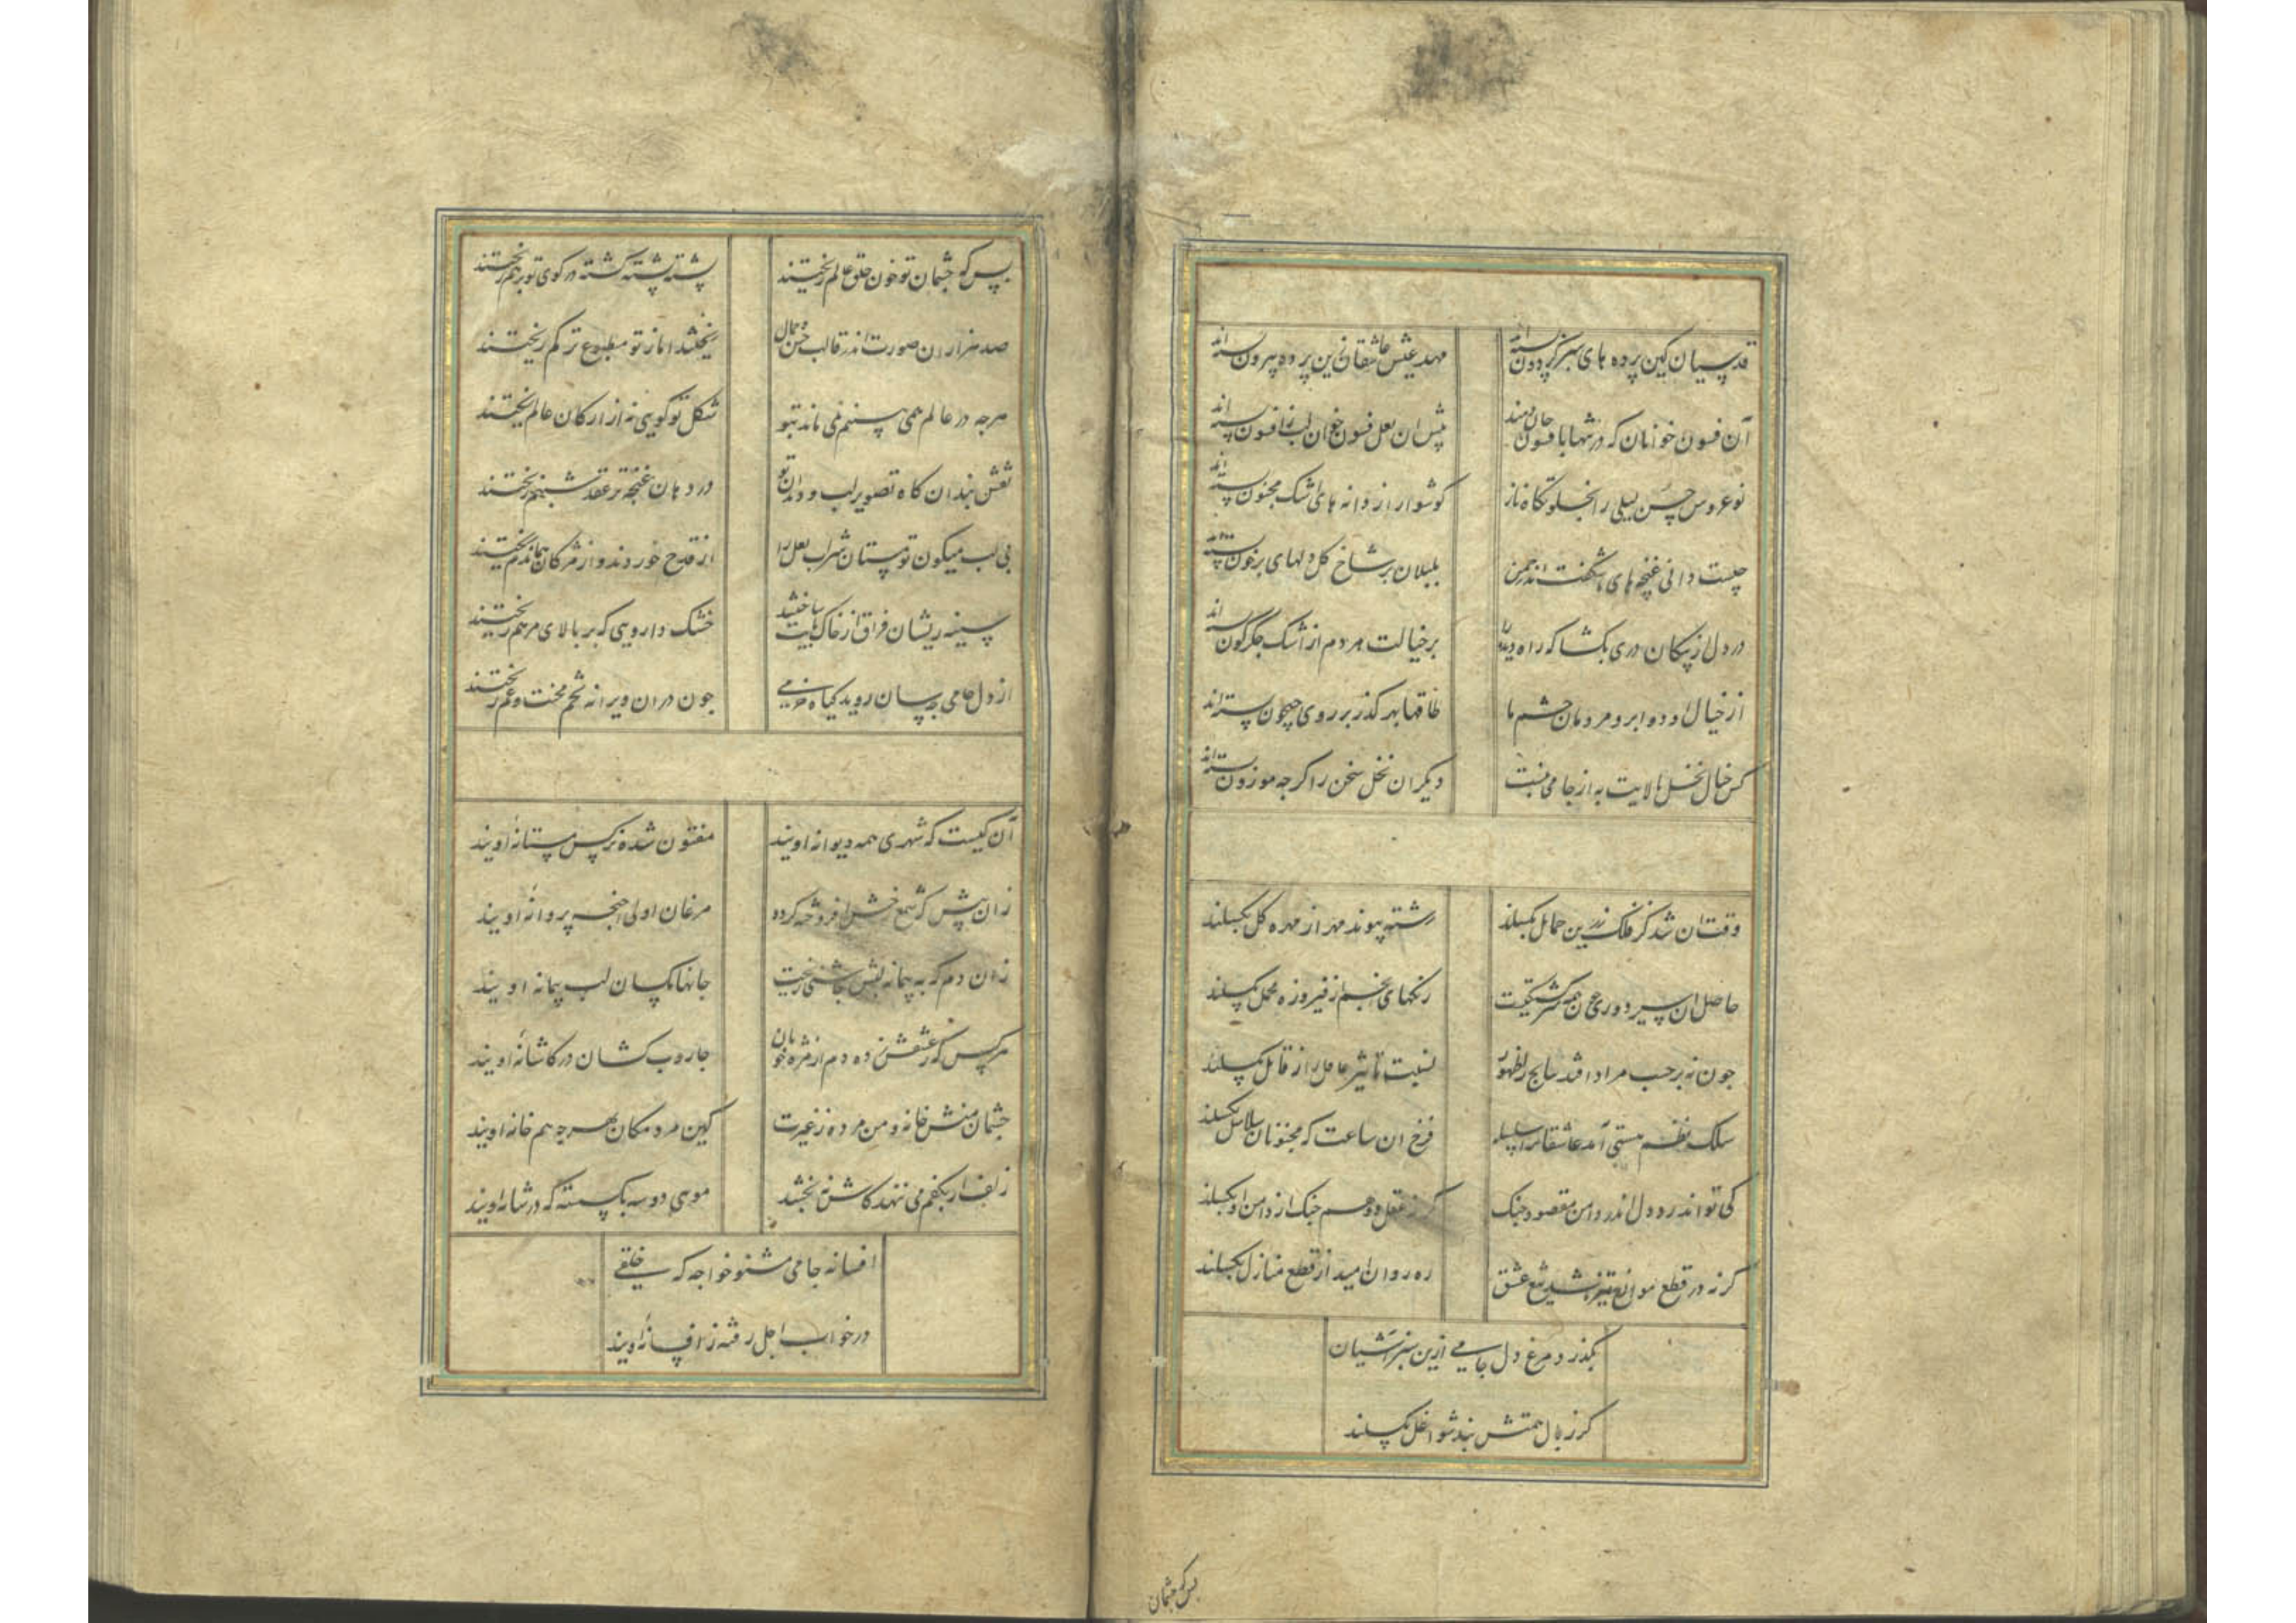 قدسیان کین پرده های سبز گردون بسته اند
مهد عیش عاشقان زین پرده بیرون بسته اند
آن فسون خوانان که در شهابا فسون جان دمند
پیش ان لعل فسون خوان لب ز افسون بسته اند
نوعروس حسن لیلی را بجلوتکاه ناز
کوشوار از دانه های اشک مجنون بسته اند
چیست دانی غنچه های ناشکفت اندر چمن
بلبلان بر شاخ کل دلهای پرخون بسته اند
در دل از پیکان دری بکشا که راه دیده را
بر خیالت هر دم از اشک جکرکون بسته اند
از خیال او دو ابرو مردمان چشم ما
طاقها بهر کذر بر روی جیحون بسته اند
کس خیال نخل بالایت به از جامی نبست
دیکران نخل سخن را کرچه موزون بسته اند
وقت ان شد کز فلک زرین حمایل بکسلند
رشته پیوند مهر از مهره کل بکسلند
حاصل ان سیر دوری چون همه سرکشتکیست
رنکهای انجم از فیروزه محمل بکسلند
چون نه بر حسب مراد افتد نتایج را ظهور
نسبت تاثیر عامل را ز قابل بکسلند
سلک نظم هستی آمد عاشقانرا سلسله
فرخ ان ساعت که مجنونان سلاسل بکسلند
کی تواند زد دل اندر دامن مقصود چنک
کر نه عقل و وهم چنک از دامن او بکسلند
کر نه در قطع موانع تیز باشد تیغ عشق
ره روان امید از قطع منازل بکسلند
بکذرد مرغ دل جامی ازین سبز آشیان
کر ز بال همتش بند شواغل بکسلند
بس که چشمان
بس که چشمان تو خون خلق عالم ریختند
پشته پشته کشته در کوی تو بر هم ریختند
صد هزاران صورت اندر قالب حسن و جمال
ریختند اما ز تو مطبوع تر کم ریختند
هرچه در عالم همی بینم نمی ماند بتو
شکل تو کویی نه از ارکان عالم ریختند
نقش بندان کاه تصویر لب و دندان تو
در دهان غنچه تر عقد شبنم ریختند
بی لب میکون تو مستان شراب لعل را
از قدح خوردند و از مژکان هماندم ریختند
سینه ریشان فراق از خاک پایت ساختند
خشک دارویی که بر بالای مرهم ریختند
از دل جامی چه سان روید کیاه خرمی
چون دران ویرانه تخم محنت و غم ریختند
آن کیست که شهری همه دیوانه اویند
مفتون شده نرکس مستانه اویند
زان پیش که شمع رخش افروخته کردد
مرغان اولی اجنحه پروانه اویند
زان دم که به پیمانه لبش چاشنی ریخت
جانها مکسان لب پیمانه اویند
هر کس که ز عشقش زده دم از مژه خوبان
جاروب کشان در کاشانه اویند
چشمان منش خانه و من مرده ز غیرت
کین مردمکان بهر چه هم خانه اویند
زلف ار بکفم می ننهد کاش ببخشد
مویی دو سه بکسسته که در شانه اویند
افسانه جامی مشنو خواجه که خلقی
در خواب اجل رفته ز افسانه اویند